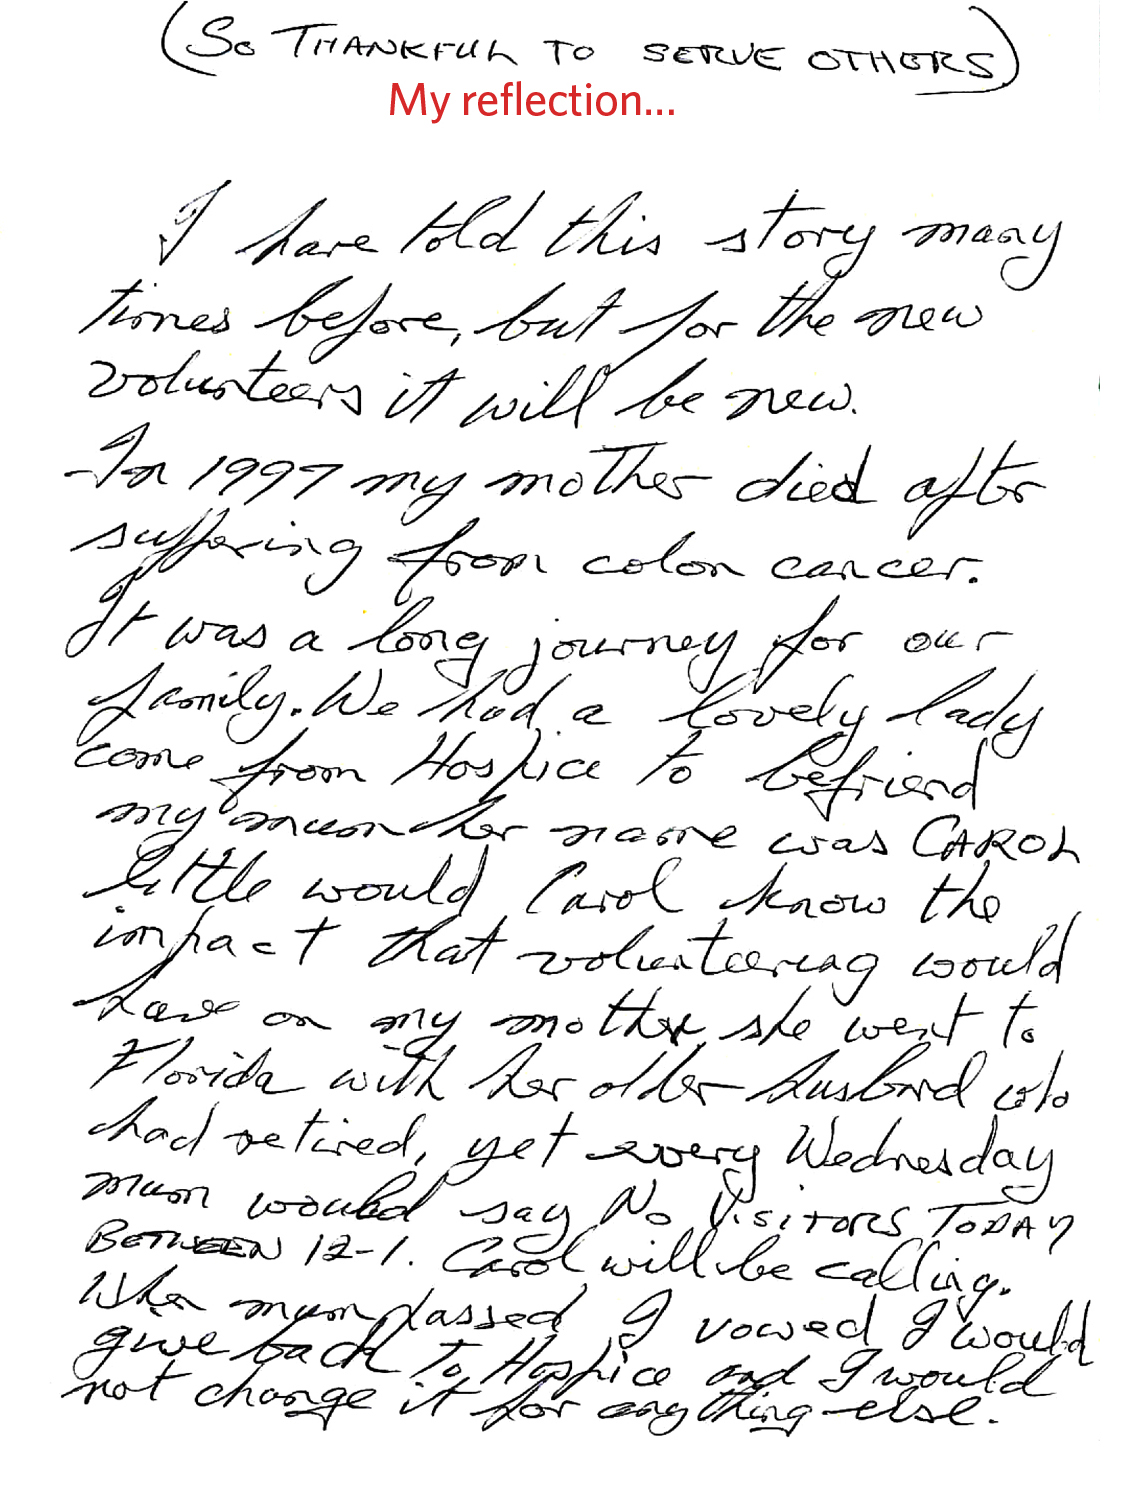 (So THANKFUL TO SERVE OTHERS)
My reflection...
I have told this story many
times before, but for the new
volunteers it will be new.
In 1997 my mother died after
suffering from colon cancer.
It was a long journey for our
family. We had a lovely lady
come from Hospice to befriend
my mum her name was CAROL
little would Carol know the
impact that volunteering would
have on my mother, she went to
Florida with her older husband who
had retired, yet every Wednesday
mum would say No VISITORS TODAY
BETWEEN 12-1. Carol will be calling.
When mum passed I vowed I would
give back to Hospice and I would
not change it for anything else.